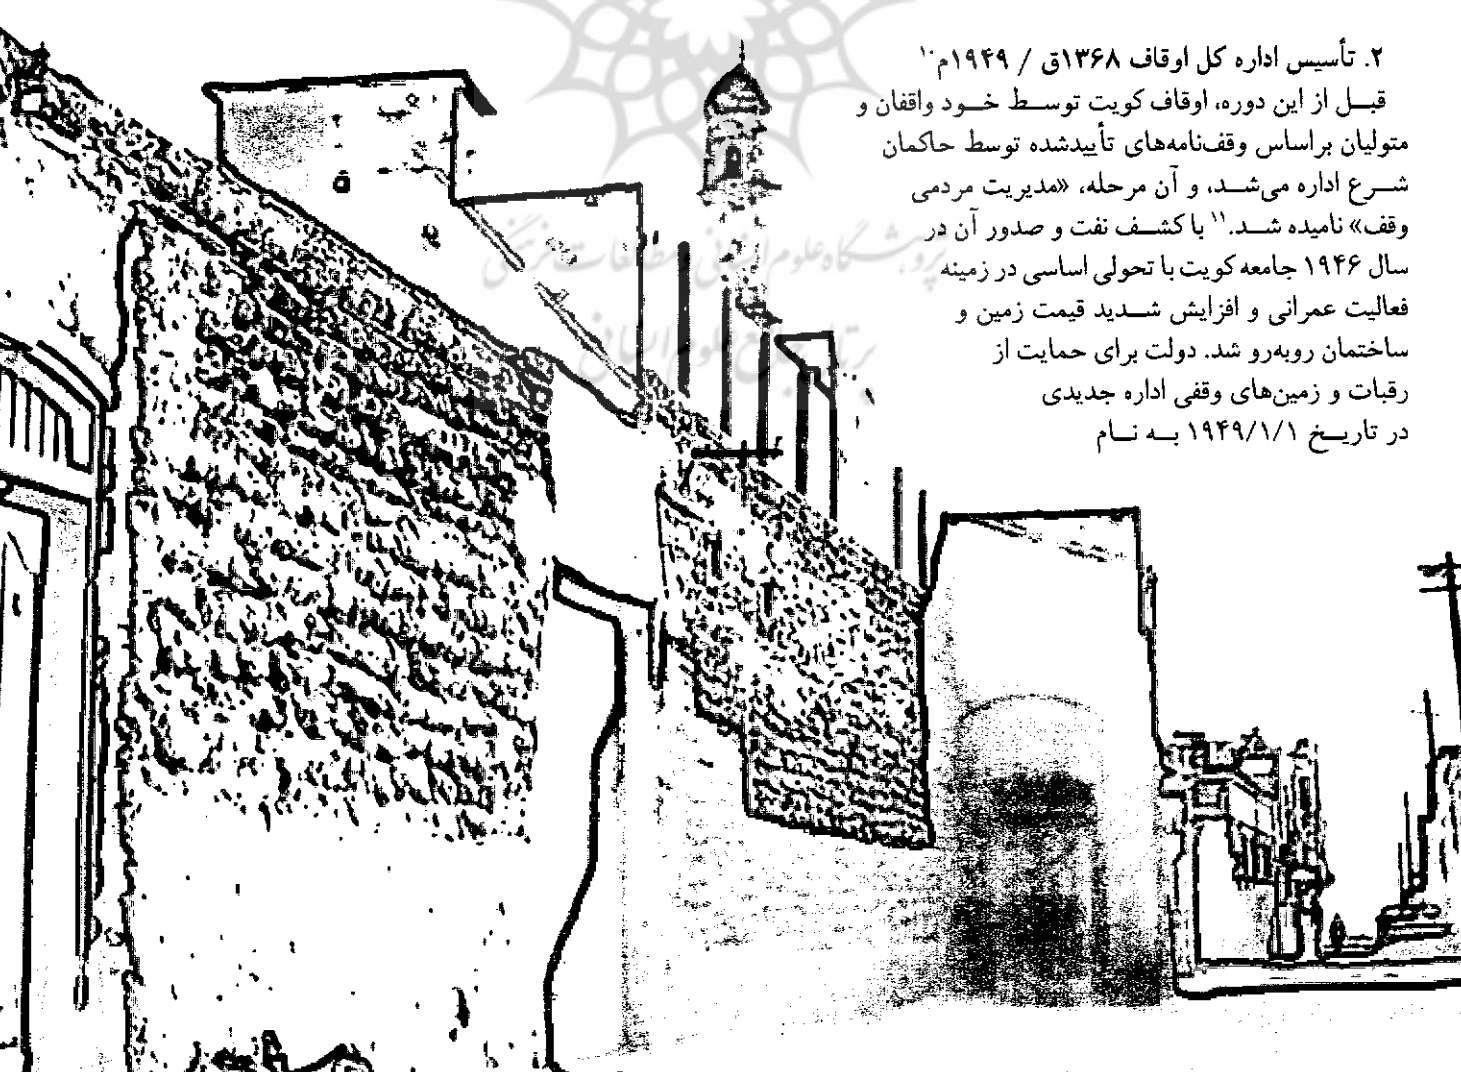 ۲. تأسیس اداره کل اوقاف ۱۳۶۸ق / ۱۹۴۹م۱۰
قبل از این دوره، اوقاف کویت توسط خود واقفان و
متولیان براساس وقف‌نامه‌های تأییدشده توسط حاکمان
شرع اداره می‌شد، و آن مرحله، «مدیریت مردمی
وقف» نامیده شد.۱۱ با کشف نفت و صدور آن در
سال ۱۹۴۶ جامعه کویت با تحولی اساسی در زمینه
فعالیت عمرانی و افزایش شدید قیمت زمین و
ساختمان روبه‌رو شد. دولت برای حمایت از
رقبات و زمین‌های وقفی اداره جدیدی
در تاریخ ۱۹۴۹/۱/۱ به نام
پژوهشگاه علوم انسانی و مطالعات فرهنگی
پرتال جامع علوم انسانی